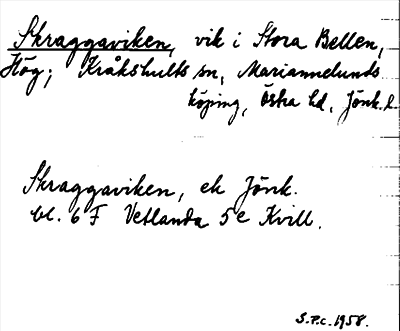 Skraggaviken, vik i Stora Bellen,
Hög; Kråkshults sn, Mariannelunds
köping, Östra hd, Jönk. l.
Skraggaviken, ek Jönk.
bl. 6 F Vetlanda 5 e Kvill.
S.P.c. 1958.